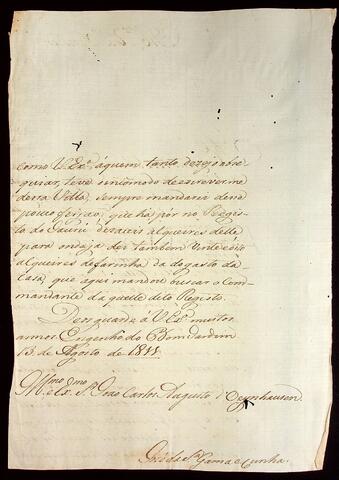 como V. Exª. áquem tanto dezejo obse
quiar, teve o incómodo de escrever-me
desta Villa, sempre mandarei deno
pouco feijao, que há por no Regis
to do Jauru dezaseis alqueires delle
para onde ja dei tambem vinte e oito
alqueires de farinha da do gasto da
Casa, que aqui mandou buscar o Com
mandante da quelle dito Registo.
Deos guarde á V. Exª. muitos
annos. Engenho do Bom Jardim
13 de Agosto de 1811
Illmo. e Exmo. Sr. João Carlos Augusto d'Oeynhausen.
Gama e Cunha.